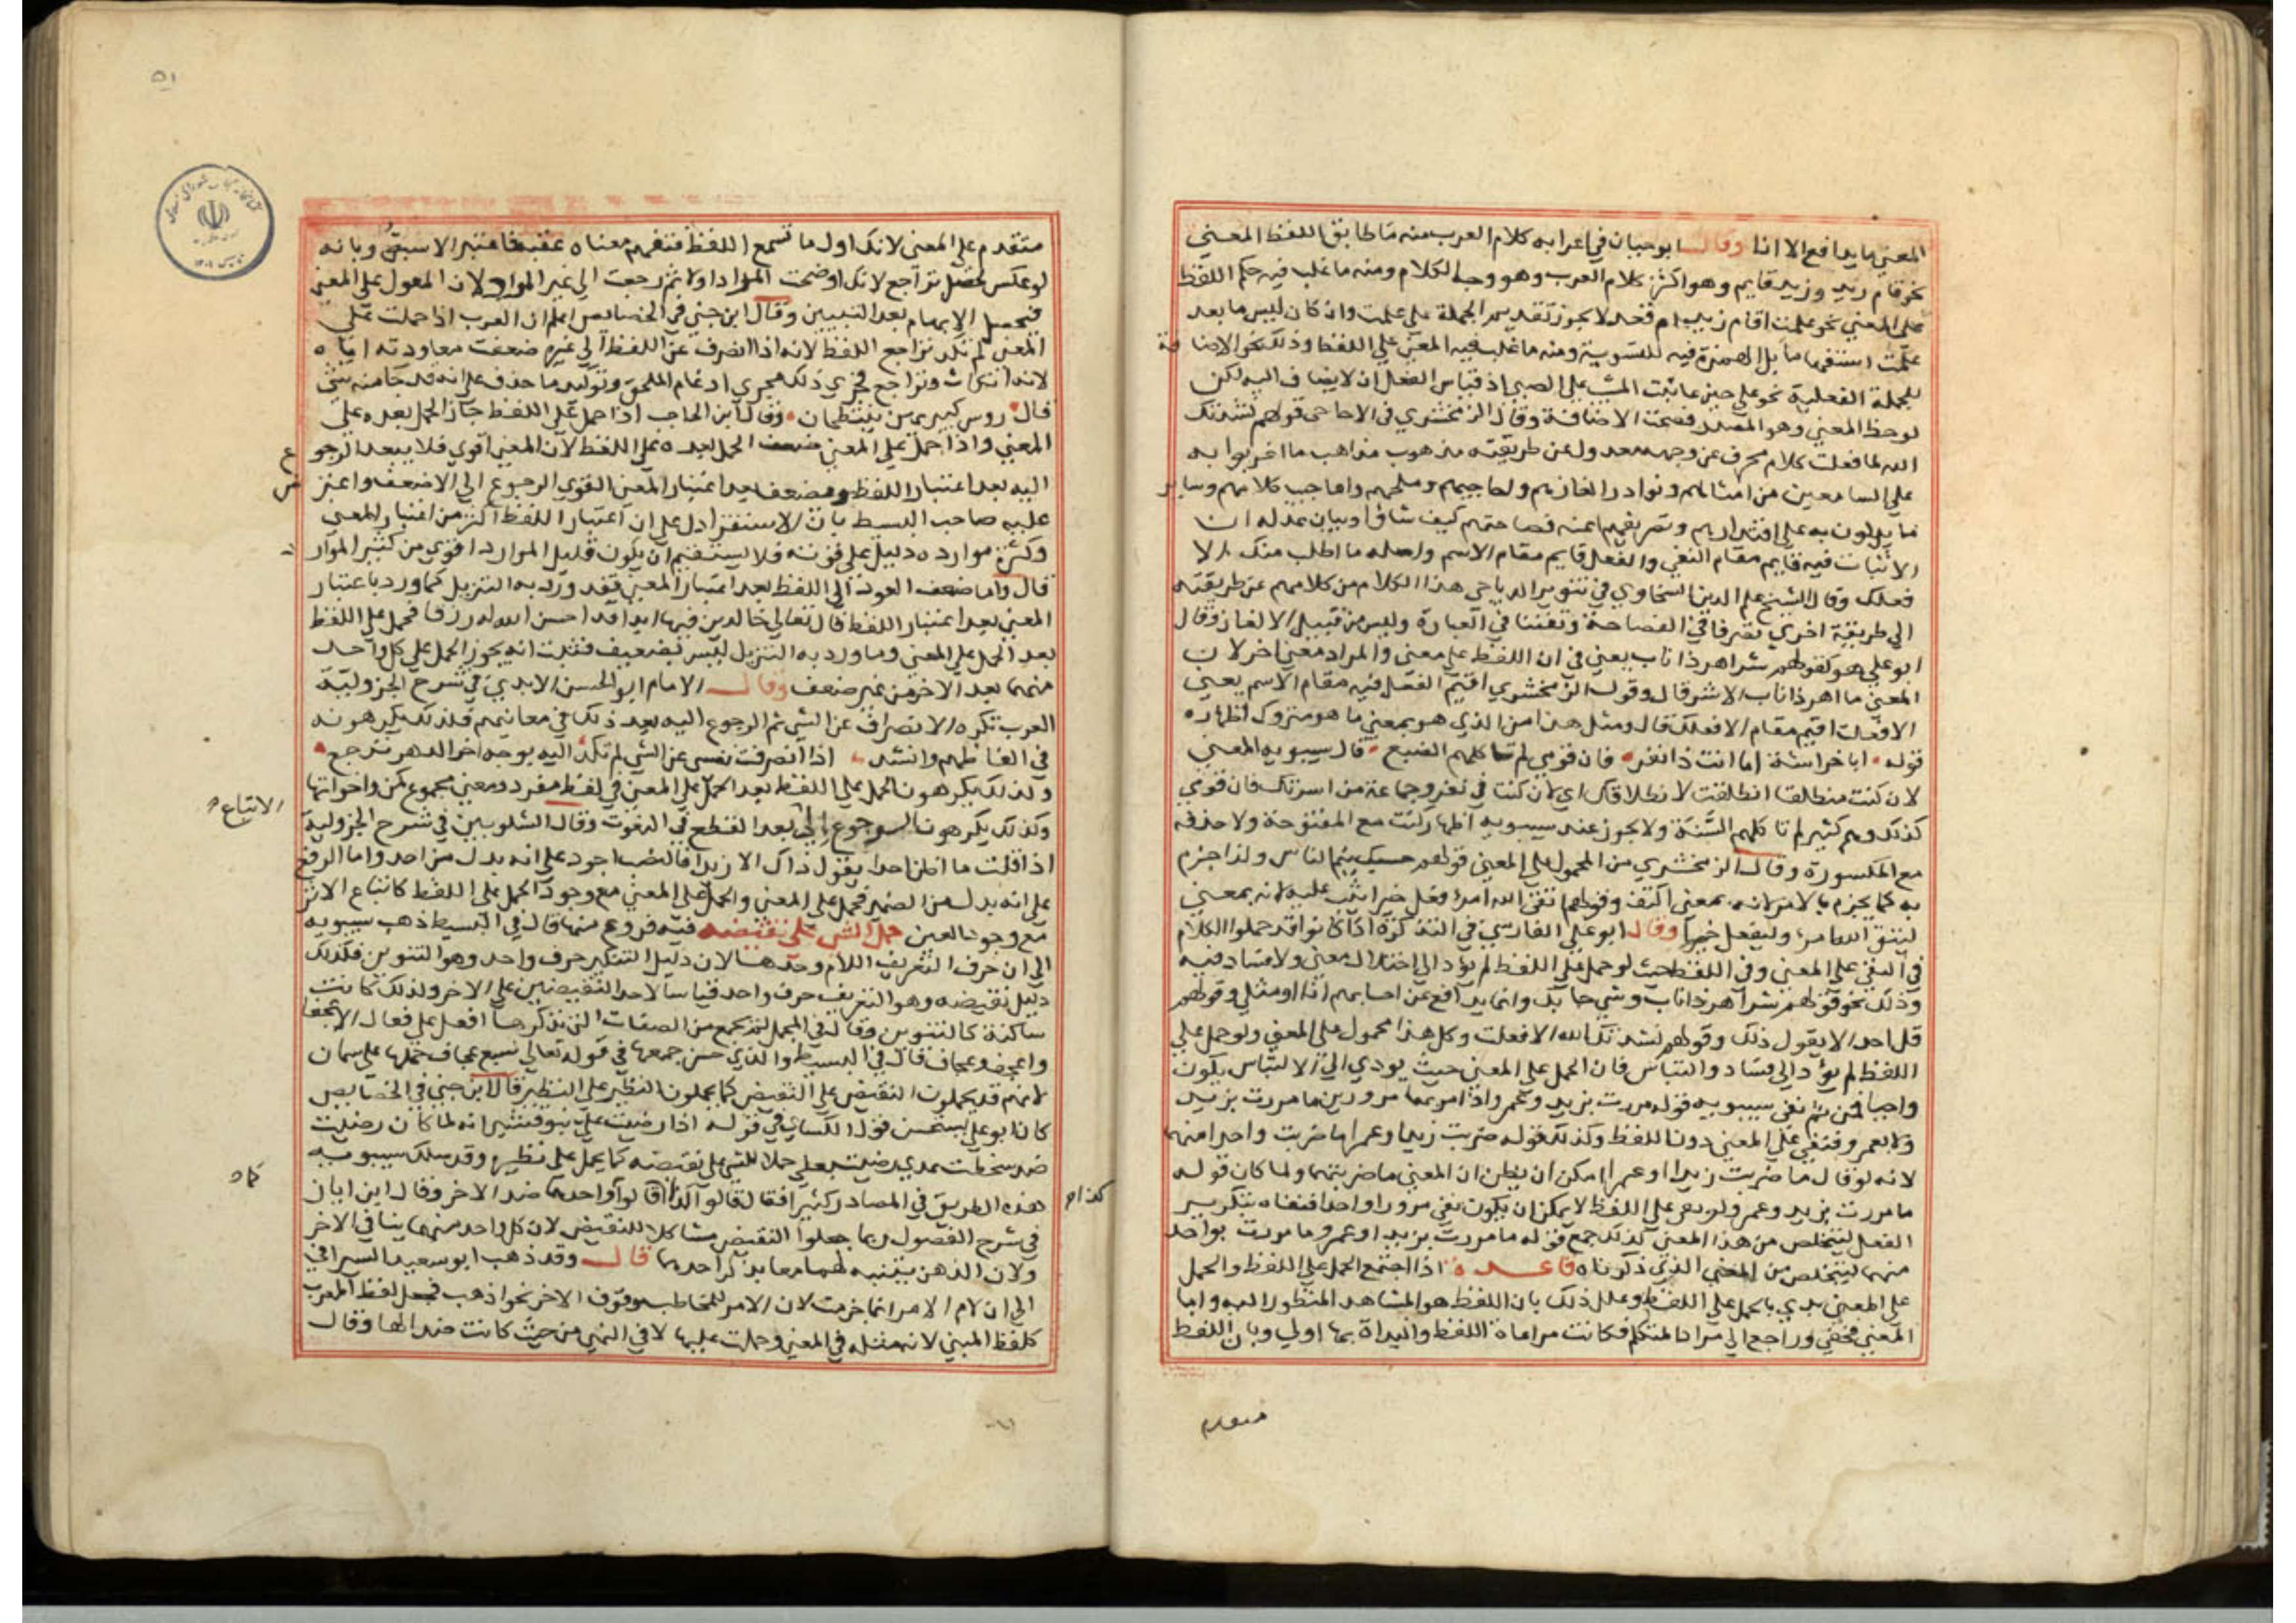 المعني ما يدافع الا انا وقال ابو حيان في اعرابه كلام العرب منه ما طابق اللفظ المعني
نحو قام زيد وزيد قايم وهو اكثر كلام العرب وهو وجه الكلام ومنه ما غلب فيه حكم اللفظ
علي المعني نحو علمت اقام زيد ام قعد لا يجوز تقديم الجملة علي علمت وان كان ليس ما بعد
علمت استفهاما بل الهمزة فيه للتسوية ومنه ما غلب فيه المعني علي اللفظ وذلك نحو الاضافة
للجملة الفعلية نحو علي حين عاتبت المشيب علي الصبي اذ قياس الفعل ان لا يضاف اليه لكن
لوحظ المعني وهو المصدر فصحت الاضافة وقال الزمخشري في الاحاجي قولهم نشدتك
الله لما فعلت كلام محرف عن وجهه معدول عن طريقته مذهوب مذاهب ما اغربوا به
علي السامعين من امثالهم ونوادر الغازهم واحاجيهم وملحهم واعاجيب كلامهم وساير
ما يدلون به علي اقتدارهم وتصريفهم اعنه فصاحتهم كيف شاوا وبيان عدله ان
الاثبات فيه قايم مقام النفي والفعل قايم مقام الاسم واصله ما اطلب منك الا
فعلك وقال الشيخ علم الدين السخاوي في تنوير الدياجي هذا الكلام من كلامهم عن طريقته
الي طريقة اخري تصرفا في الفصاحة وتفننا في العبارة وليس من قبيل الالغاز وقال
ابو علي هو كقولهم شر اهر ذا ناب يعني في ان اللفظ علي معني والمراد معني اخر لان
المعني ما اهر ذا ناب الا شر قال وقول الزمخشري اقيم الفعل فيه مقام الاسم يعني
الا فعلت اقيم مقام الا فعلك قال ومثل هذا من الذي هو بمعني ما هو متروك اظهاره
قوله ابا خراشة اما انت ذا نفر فان قومي لم تاكلهم الضبع قال سيبويه المعني
لان كنت منطلقا انطلقت لانطلاقك اي لان كنت في نفر وجماعة من اسرتك فان قومي
كذلك وهم كثير لم تاكلهم السنة ولا يجوز عند سيبويه اظهار كنت مع المفتوحة ولا حذفه
مع المكسورة وقال الزمخشري من المحمول علي المعني قولهم حسبك ينم الناس ولذا جزم
به كما يجزم بالامر لانه بمعني اكتف وقولهم اتقي الله امرؤ وفعل خيرا يثب عليه لانه بمعني
ليتق الله امرؤ وليفعل خيرا وقال ابو علي الفارسي في التذكرة اذا كانوا قد حملوا الكلام
في النفي علي المعني دون اللفظ حيث لو حمل علي اللفظ لم يؤد الي اختلال معني ولا فساد فيه
وذلك نحو قولهم شر اهر ذا ناب وشي جا بك وانما يدافع عن احسابهم انا او مثلي وقولهم
قل احد الا يقول ذلك وقولهم نشدتك الله الا فعلت وكل هذا محمول علي المعني ولو حمل علي
اللفظ لم يؤد الي فساد والتباس فان الحمل علي المعني حيث يودي الي الالتباس يكون
واجبا فمن ثم نفي سيبويه قوله مررت بزيد وعمرو اذا مر بهما مرورين ما مررت بزيد
ولا بعمرو فنفي علي المعني دون اللفظ وكذلك قوله ضربت زيدا او عمرا ما ضربت واحدا منهما
لانه لو قال ما ضربت زيدا او عمرا امكن ان يظن ان المعني ما ضربتهما ولما كان قوله
ما مررت بزيد وعمرو لو نفي علي اللفظ لا يمكن ان يكون نفي مرورا واحدا فنفاه بتكرير
الفعل ليتخلص من هذا المعني كذلك جمع قوله ما مررت بزيد او عمرو ما مررت بواحد
منهما ليتخلص من المعني الذي ذكرناه قاعدة اذا اجتمع الحمل علي اللفظ والحمل
علي المعني بدي بالحمل علي اللفظ وعلل ذلك بان اللفظ هو المشاهد المنظور اليه واما
المعني فخفي وراجع الي مراد المتكلم فكانت مراعاة اللفظ والبداة بها اولي وبان اللفظ
متقدم
٥١
متقدم علي المعني لانك اول ما تسمع اللفظ فتفهم معناه عقبه فاعتبر الاسبق وبانه
لو عكس لحصل تراجع لانك اوضحت المراد اولا ثم رجعت الي غير المراد لان المعول علي المعني
فحصل الابهام بعد التبيين وقال ابن جني في الخصايص اعلم ان العرب اذا حملت علي
المعني لم تكد تراجع اللفظ لانه اذا انصرف عن اللفظ الي غيره ضعفت معاودته اياه
لانه انتكاث وتراجع فجري ذلك مجري ادغام الملحق وتوكيد ما حذف علي انه قد جا منه شي
قال روس كبيريهن ينتطحان وقال ابن الحاجب اذا حمل علي اللفظ جاز الحمل بعده علي
المعني واذا حمل علي المعني ضعف الحمل بعده علي اللفظ لان المعني اقوي فلا يبعد الرجوع
اليه بعد اعتبار اللفظ ويضعف بعد اعتبار المعني القوي الرجوع الي الاضعف واعترض
عليه صاحب البسيط بان الاستقرا دل علي ان اعتبار اللفظ اكثر من اعتبار المعني
وكثرة موارده دليل علي قوته فلا يستقيم ان يكون قليل الموارد اقوي من كثير الموارد
قال واما ضعف العود الي اللفظ بعد اعتبار المعني فقد ورد به التنزيل كما ورد باعتبار
المعني بعد اعتبار اللفظ قال تعالي خالدين فيها ابدا قد احسن الله له رزقا فحمل علي اللفظ
بعد الحمل علي المعني وما ورد به التنزيل ليس بضعيف فثبت انه يجوز الحمل علي كل واحد
منهما بعد الاخر من غير ضعف وقال الامام ابو الحسن الابدي في شرح الجزولية
العرب تكره الانصراف عن الشي ثم الرجوع اليه بعد ذلك في معانيهم فلذلك يكرهونه
في الفاظهم وانشد اذا انصرفت نفسي عن الشي لم تكد اليه بوجه اخر الدهر ترجع
ولذلك يكرهون الحمل علي اللفظ بعد الحمل علي المعني في لفظ مفرد ومعني مجموع كمن واخواتها
وكذلك يكرهون الرجوع الي بعد القطع في النعوت وقال الشلوبين في شرح الجزولية
الاتباع
اذا قلت ما اظن احدا يقول ذاك الا زيدا فالنصب اجود علي انه بدل من احد واما الرفع
علي انه بدل من الضمير فحمل علي المعني والحمل علي المعني مع وجود الحمل علي اللفظ كاتباع الاثر
مع وجود العين حمل الشي علي نقيضه فيه فروع منها قال في البسيط ذهب سيبويه
الي ان حرف التعريف اللام وحدها لان دليل التنكير حرف واحد وهو التنوين فكذلك
دليل نقيضه وهو التعريف حرف واحد قياسا لاحد النقيضين علي الاخر ولذلك كانت
ساكنة كالتنوين وقال في المجمل لم يجمع من الصفات التي مذكرها افعل علي فعال الا عجفا
واعجف وعجاف قال في البسيط والذي حسن جمعها في قوله تعالي سبع عجاف حملها علي سمان
لانهم قد يحملون النقيض علي النقيض كما يحملون النظير علي النظير قال ابن جني في الخصايص
كان ابو علي يستحسن قول الكساي في قوله اذا رضيت علي بنو قشير انه لما كان رضيت
ضد سخطت عدي رضيت بعلي حملا للشي علي نقيضه كما يحمل علي نظيره وقد سلك سيبويه
هذه الطريق في المصادر كثيرا فقال قالوا كذا كما قالوا كذا واحدهما ضد الاخر وقال ابن اياز
في شرح الفصول ربما جعلوا النقيض مشاكلا للنقيض لان كل واحد منهما ينافي الاخر
ولان الذهن يتنبه لهما معا بذكر احدهما قال وقد ذهب ابو سعيد السيرافي
الي ان لام الامر انما جزمت لان الامر للمخاطب موقوف الاخر نحو اذهب فجعل لفظ المعرب
كلفظ المبني لانه مثله في المعني وحملت عليها لا في النهي من حيث كانت ضدا لها وقال